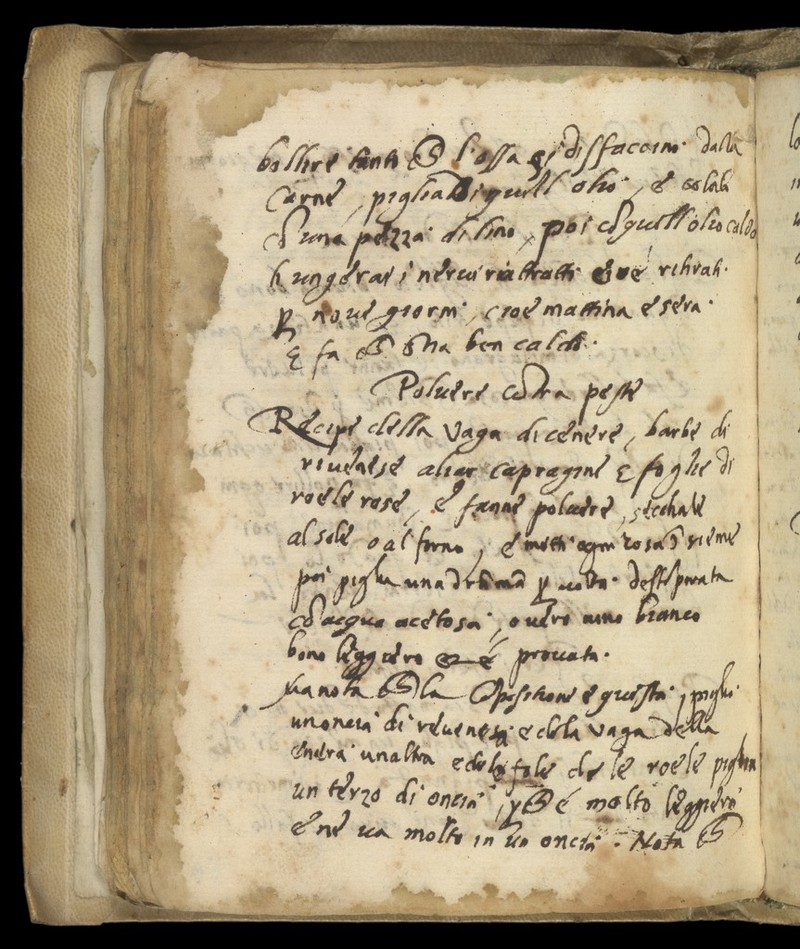 bollire tanto che l'ossa si disfaccino dalla
carne, piglia di quell olio, e colali
cō una pezza di lino, poi cō quell olio caldo
ungerai i nervi rattratti e ritirati.
p nove giorni, cioe mattina e sera.
E fa che stia ben caldo.
Polvere cōtra peste
Recipe della vaga di cenere, barbe di
rivenese aliar capragine e foglie di
roele rose, e fanne polvere, secchale
al sole o al forno, e metti ogni cosa insieme
poi piglia una drāma p volta destēprata
cō acqua acetosa, overo vino bianco
bono leggiero e provata.
nota che la cōpositione e questa, piglia
un oncia di revenesa e dela vaga della
enera unaltra e dele fole de le roele piglia
un terzo di oncia, p che é molto leggiero
e ne va molto in una oncia. Nota che